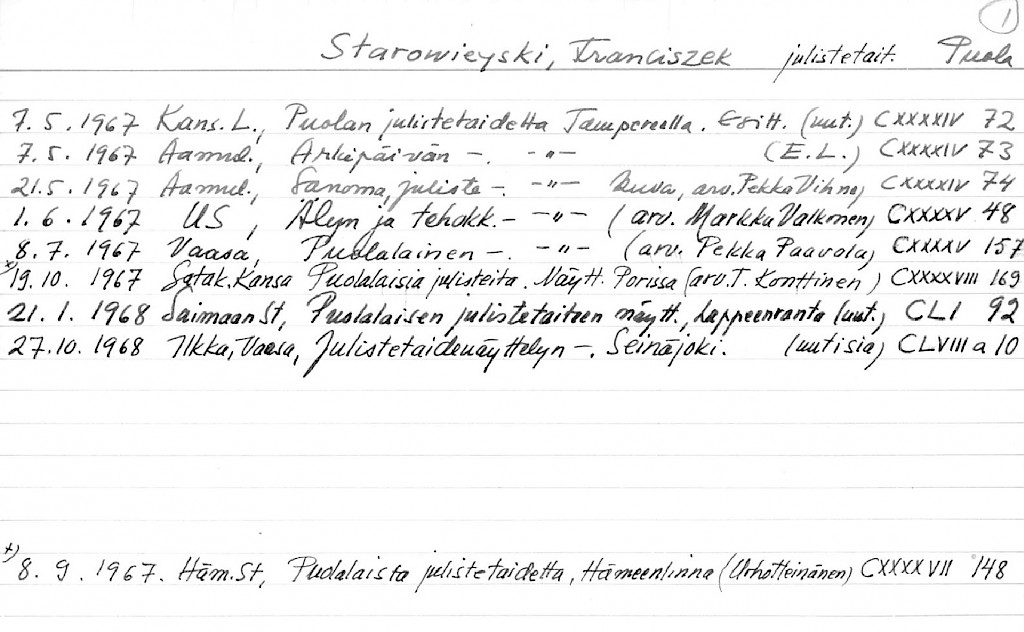 1
Starowieyski, Franciszek julistetait. Puola
7.5.1967 Kans.L., Puolan julistetaidetta Tampereella. Esitt. (uut.) CXXXXIV 72
7.5.1967 Aamul., Arkipäivän –. –"– (E.L.) CXXXXIV 73
21.5.1967 Aamul., Sanoma, juliste –. –"– kuva, arv. Pekka Vihma) CXXXXIV 74
1.6.1967 US, Älyn ja tehokk. – –"– (arv. Markku Valkonen) CXXXXV 48
8.7.1967 Vaasa, Puolalainen –. –"– (arv. Pekka Paavola) CXXXXV 157
x) 19.10.1967 Satak.Kansa Puolalaisia julisteita. Näytt. Porissa (arv. T. Konttinen) CXXXXVIII 169
21.1.1968 SaimaanSt, Puolalaisen julistetaiteen näytt., Lappeenranta (uut.) CLI 92
27.10.1968 Ilkka, Vaasa, Julistetaidenäyttelyn –. Seinäjoki. (uutisia) CLVIII a 10
x) 8.9.1967. Häm.St, Puolalaista julistetaidetta, Hämeenlinna (Urho Heinänen) CXXXXVII 148